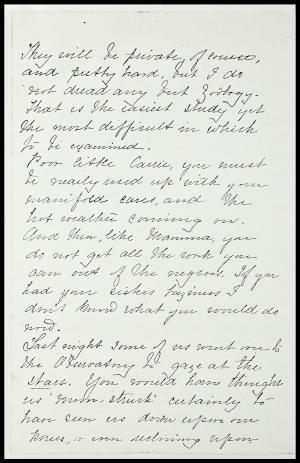 They will be private of course,
and pretty hard, but I do
not dread any but Zoology.
That is the easiest study yet
the most difficult in which
to be examined.
Poor little Carrie, you must
be nearly used up with your
manifold cares, and the
hot weather coming on.
And then, like Mamma, you
do not get all the work you
can out of the negroes. If you
had your sister's laziness I
don't know what you would do
now.
Last night some of us went over to
the Observatory to gaze at the
stars. You would have thought
us "moon-struck" certainly to
have seen us down upon our
knees, or even reclining upon